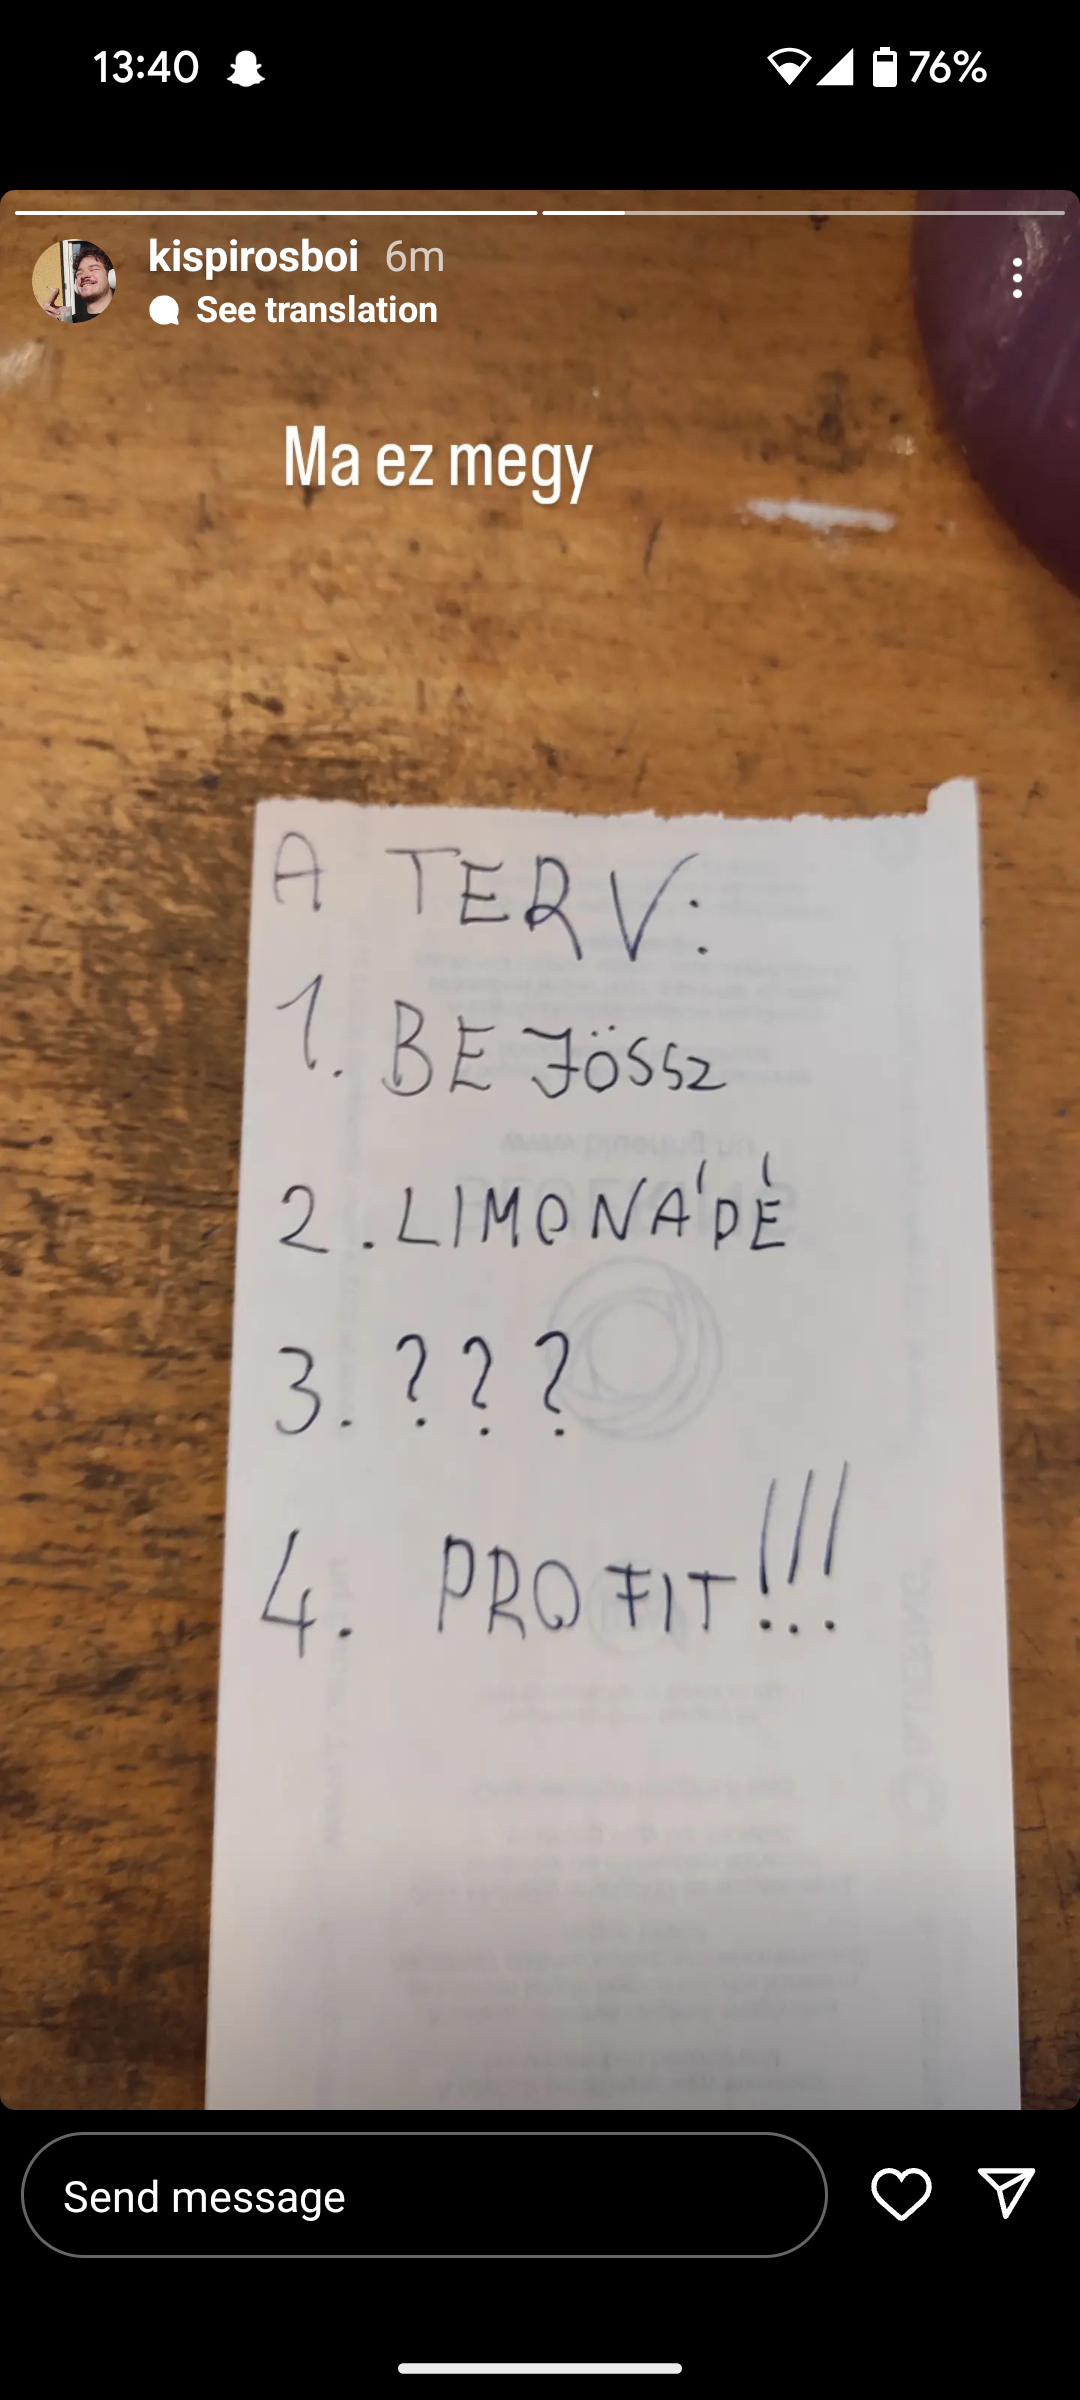 13:40
76%
kispirosboi 6m
See translation
Ma ez megy
A TERV:
1. BE JÖSSZ
2. LIMONÁDÉ
3. ???
4. PROFIT!!!
Send message